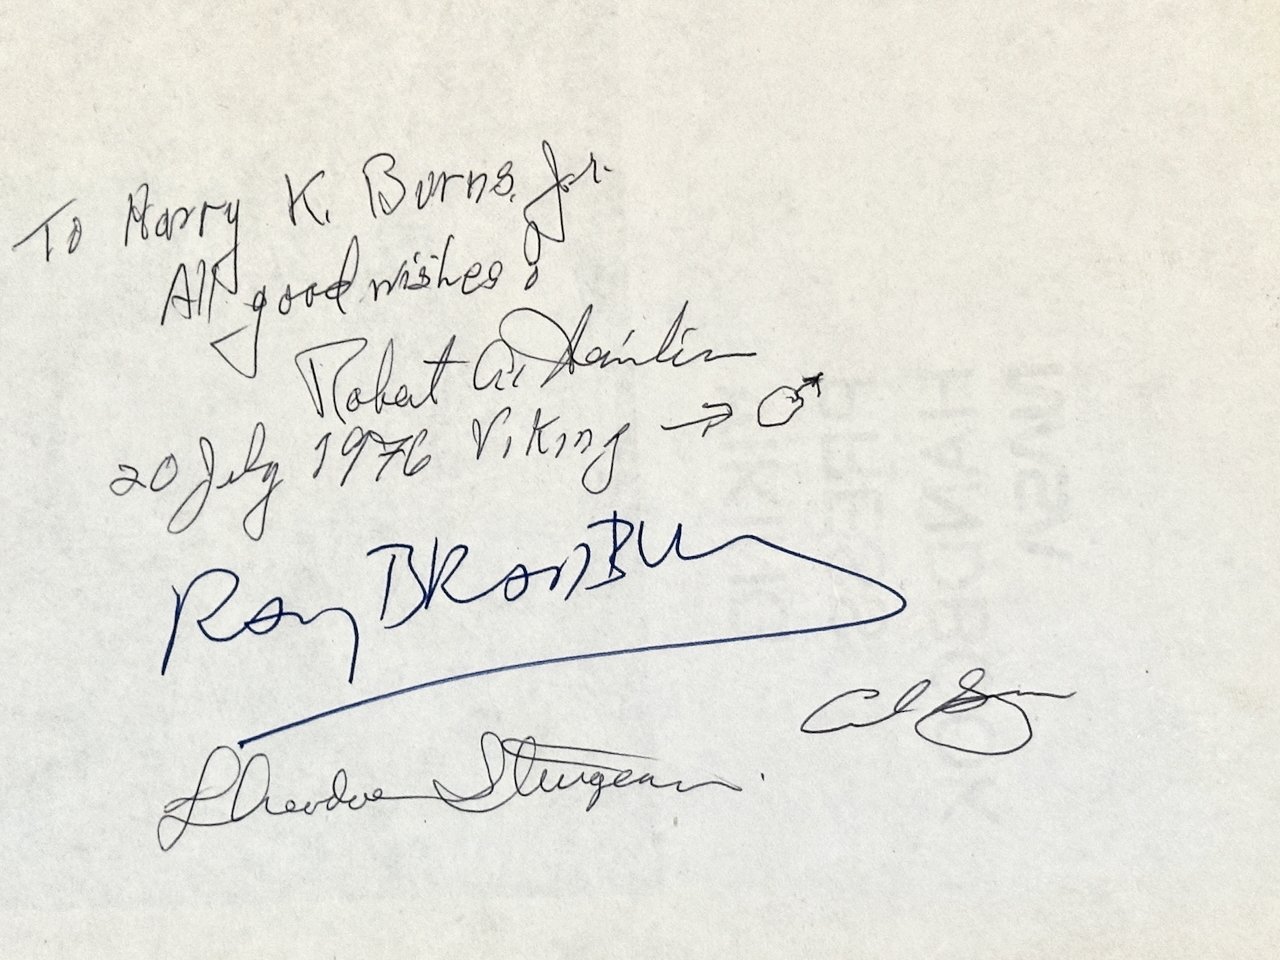 To Harry K. Burns, Jr.
All good wishes!
Robert A. Heinlein
20 July 1976 Viking → ♂
Ray BRADBURy
Carl Sagan
Theodore Sturgeon